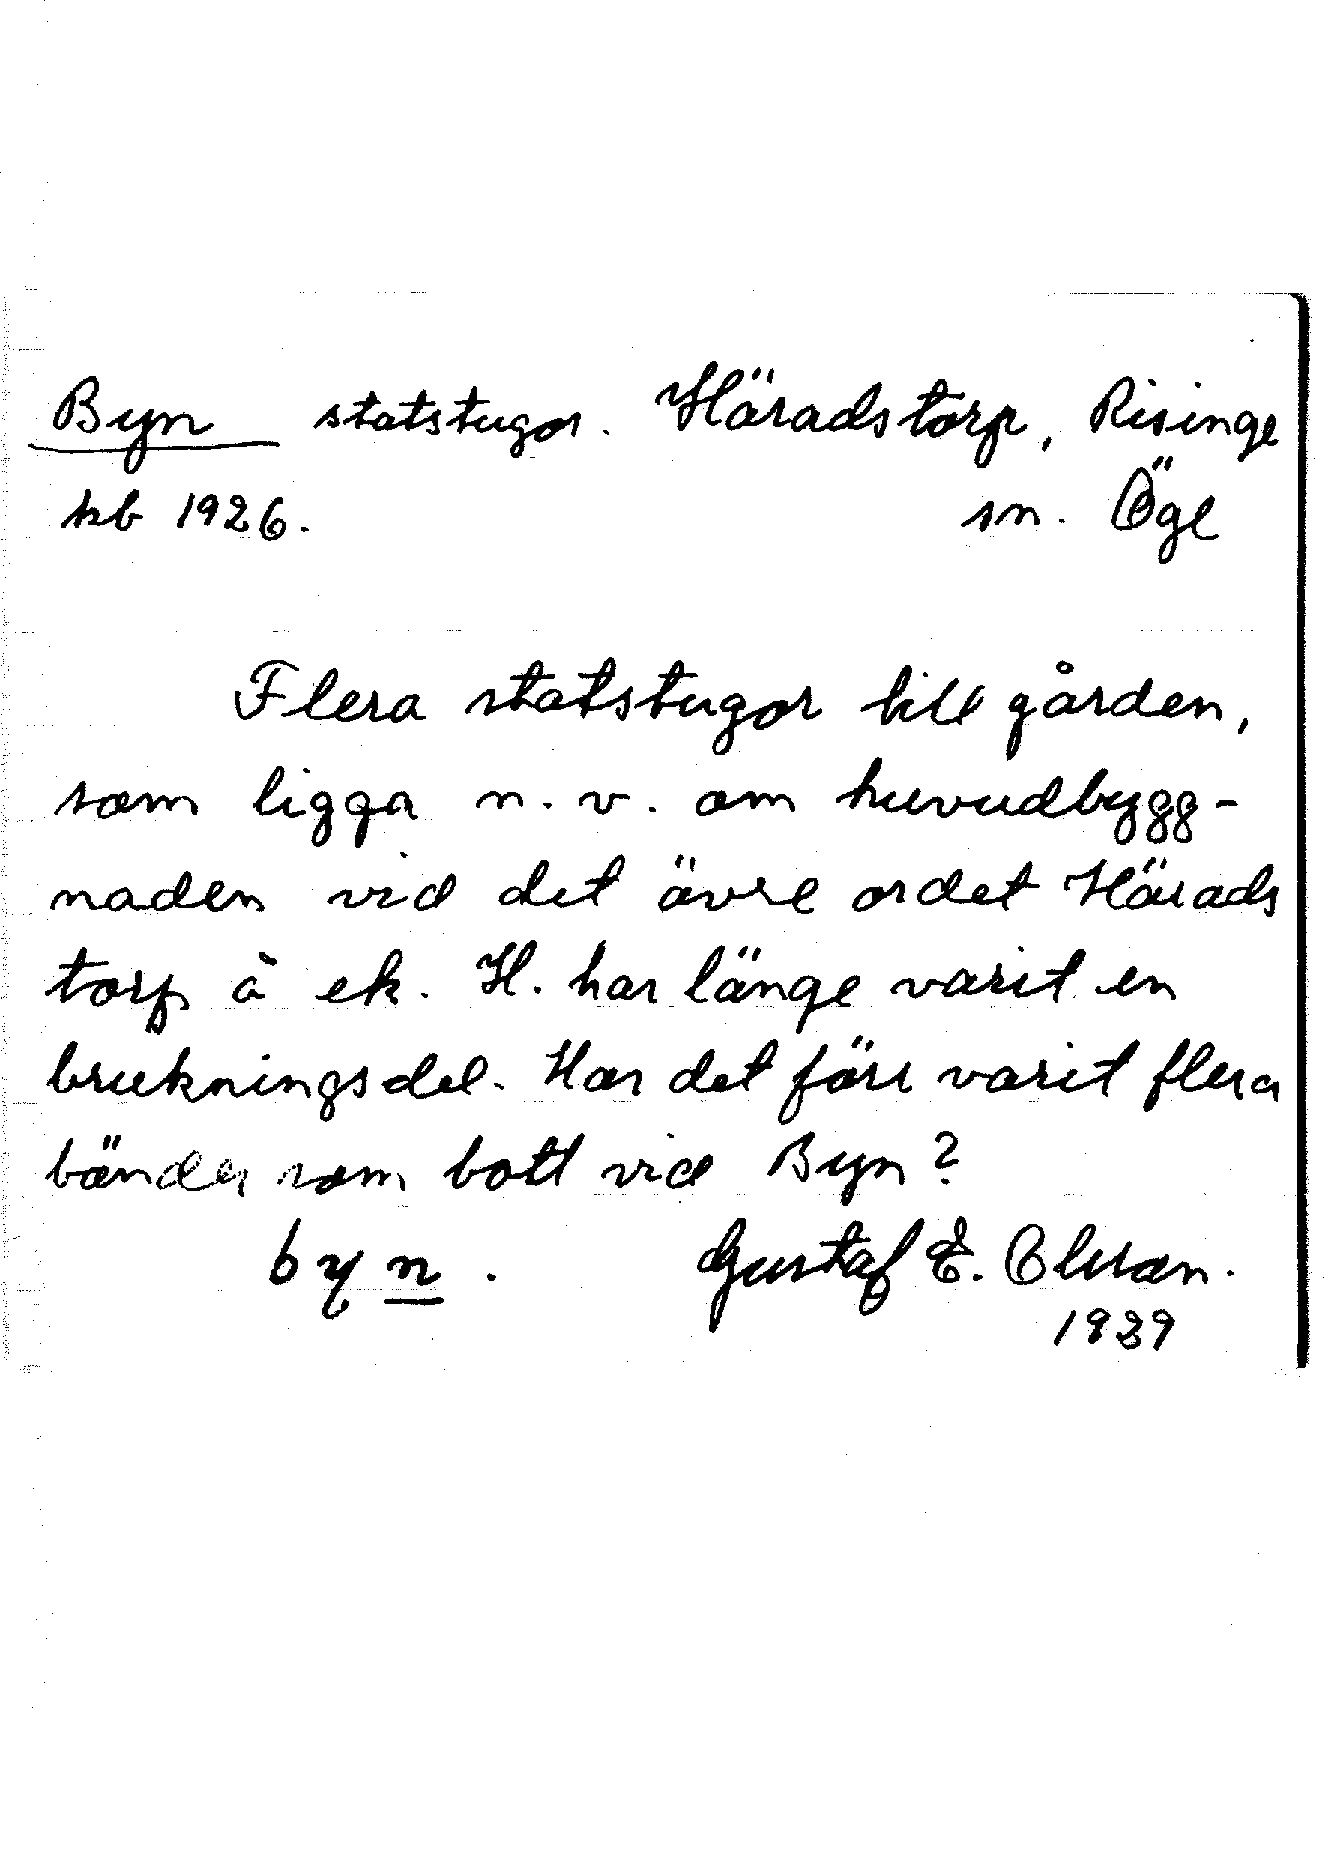 Byn statstugor. Häradstorp, Risinge
kb 1926. sn. Ögl
Flera statstugor till gården,
som ligga n.v. om huvudbygg-
naden vid det övre ordet Härads
torp å ek. H. har länge varit en
brukningsdel. Har det förr varit flera
bönder som bott vid Byn?
byn. Gustaf E. Olsson.
1939